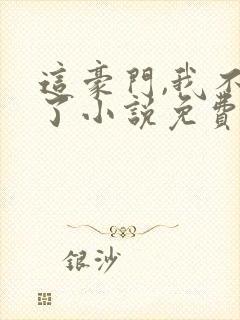 這豪門,我不
了小說免費
銀沙